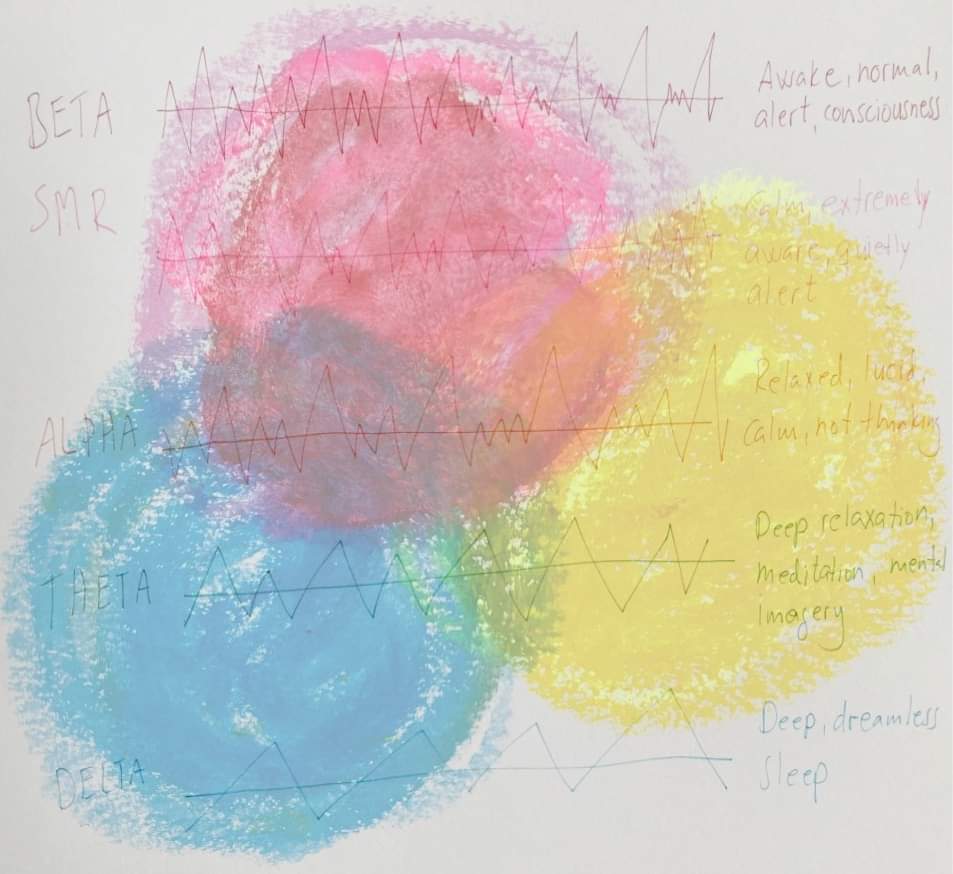 BETA
Awake, normal,
alert, consciousness
SMR
Calm, extremely
aware, quietly
alert
ALPHA
Relaxed, lucid,
Calm, not thinking
THETA
Deep relaxation,
meditation, mental
Imagery
DELTA
Deep, dreamless
Sleep